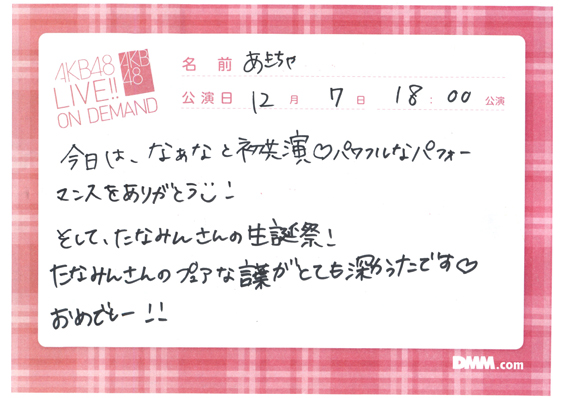 AKB48
LIVE!!
ON DEMAND
AKB
48
名前 あきちゃ
公演日 12月 7日 18:00公演
今日は、なぁなと初共演♡パワフルなパフォー
マンスをありがとう!
そして、たなみんさんの生誕祭!
たなみんさんのピュアな言葉がとても深かったです♡
おめでとー!!
DMM.com